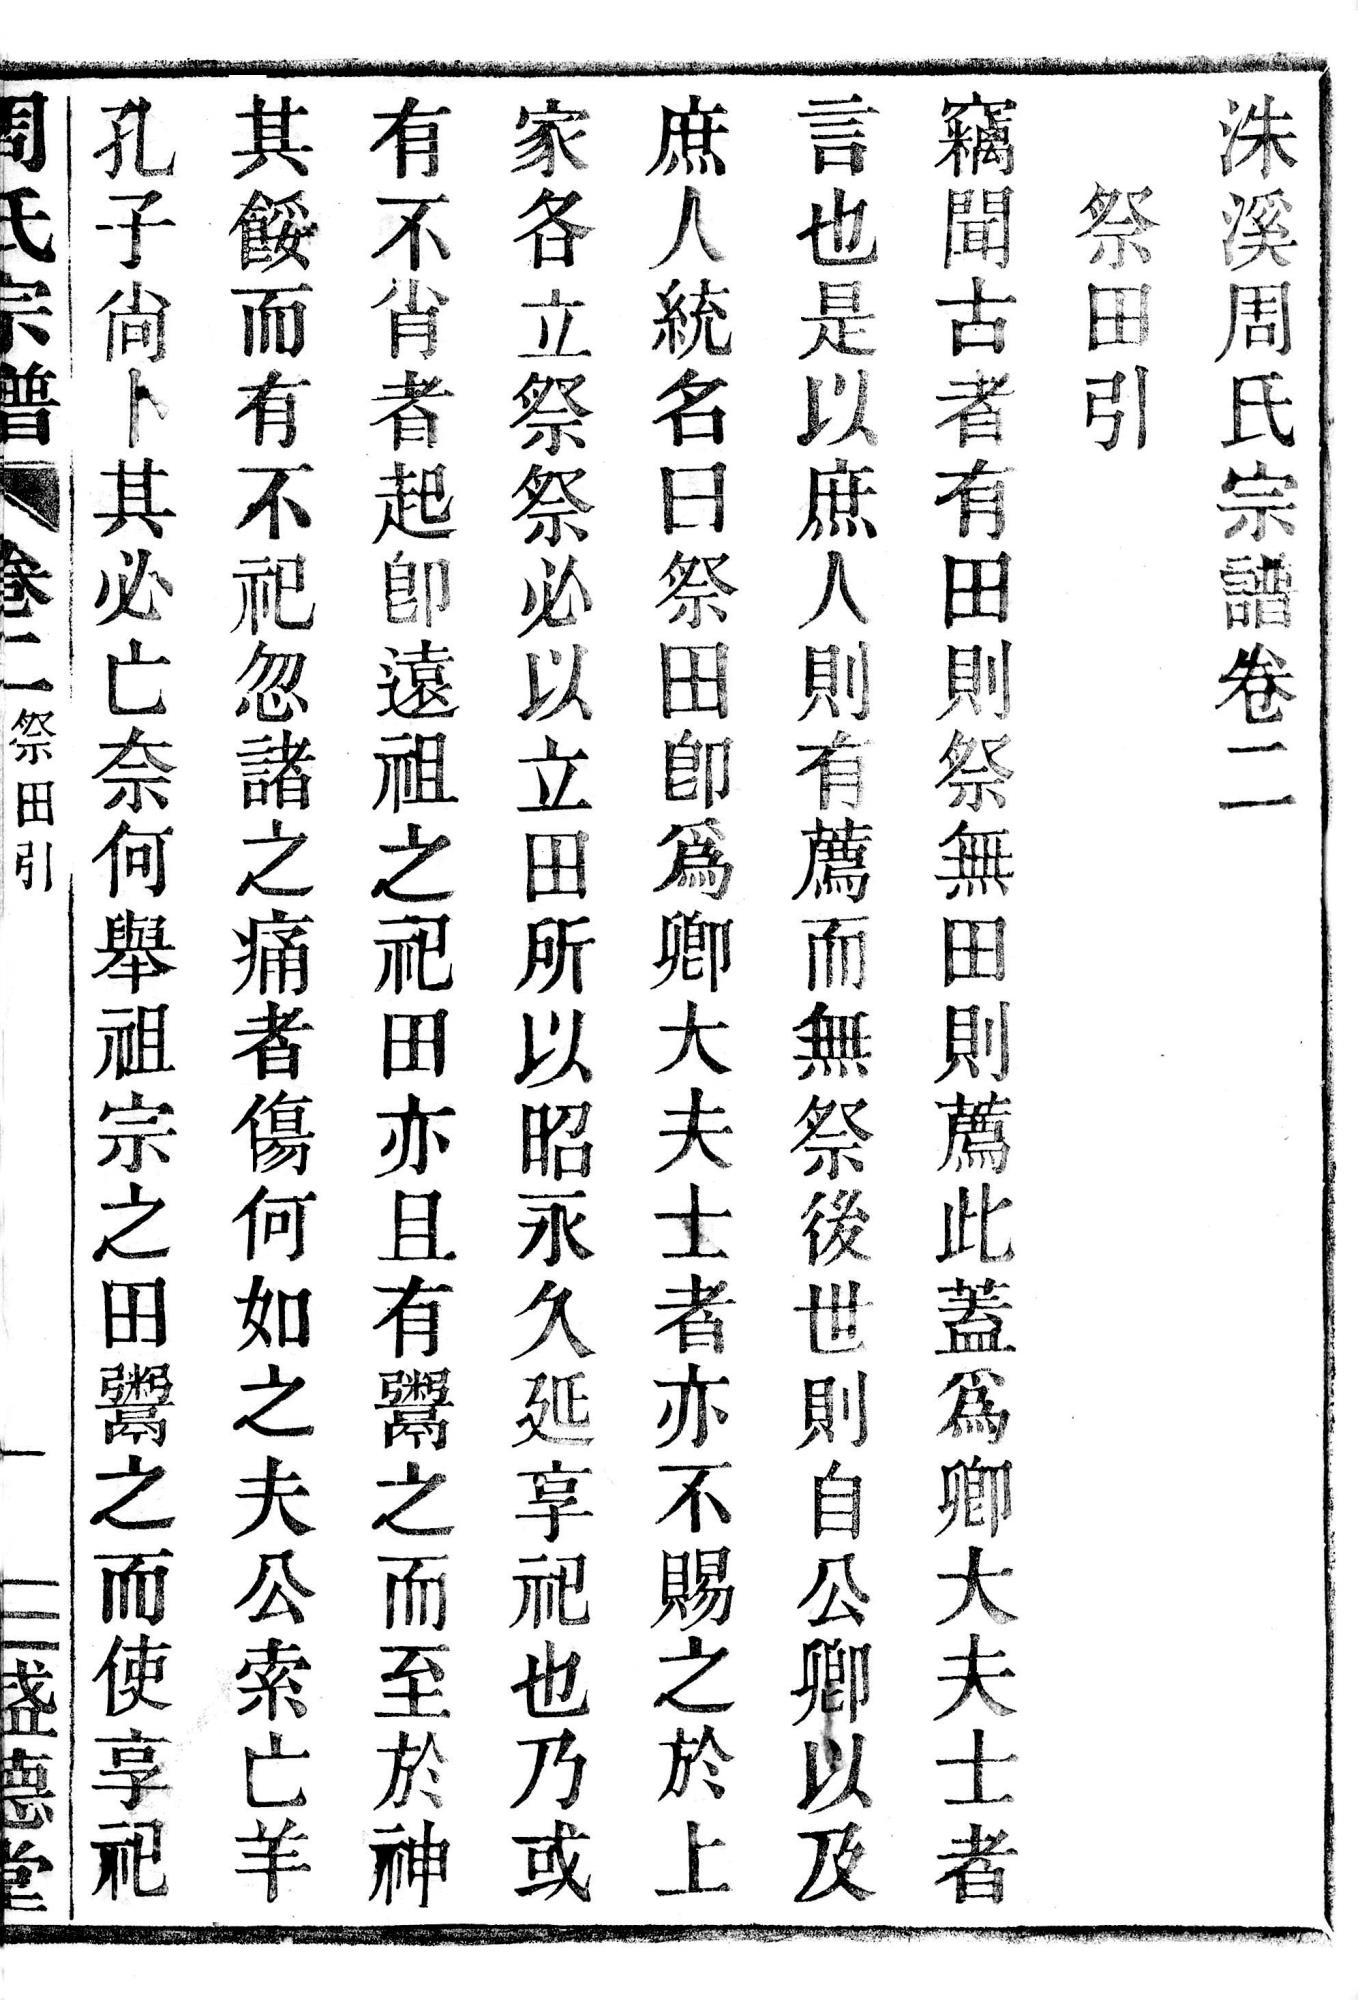 洙溪周氏宗譜卷二
祭田引
竊聞古者有田則祭無田則薦此蓋爲卿大夫士者
言也是以庶人則有薦而無祭後世則自公卿以及
庶人統名曰祭田卽爲卿大夫士者亦不賜之於上
家各立祭祭必以立田所以昭永久延享祀也乃或
有不肖者起卽遠祖之祀田亦且有鬻之而至於神
其餒而有不祀忽諸之痛者傷何如之夫公索亡羊
孔子尙卜其必亡奈何舉祖宗之田鬻之而使享祀
周氏宗譜 卷二 祭田引 一 三盛德堂